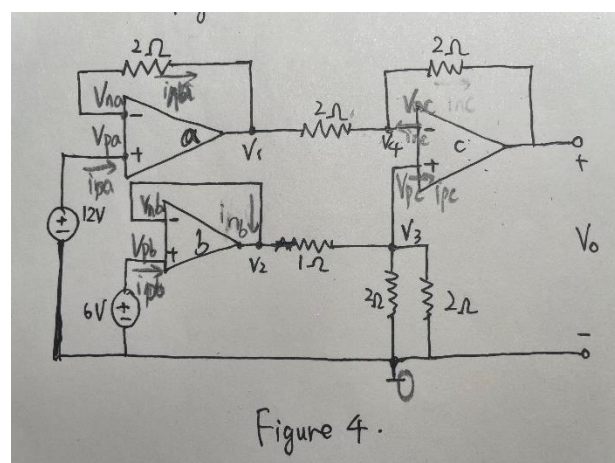 2Ω
2Ω
Vna
ina
Vpa
a
ipa
V1
2Ω
V4
Vnc
inc
inc
c
Vpc
ipc
+
12V
Vnb
inb
b
Vpb
ipb
V2
1Ω
V3
Vo
6V
2Ω
2Ω
-
0
Figure 4.